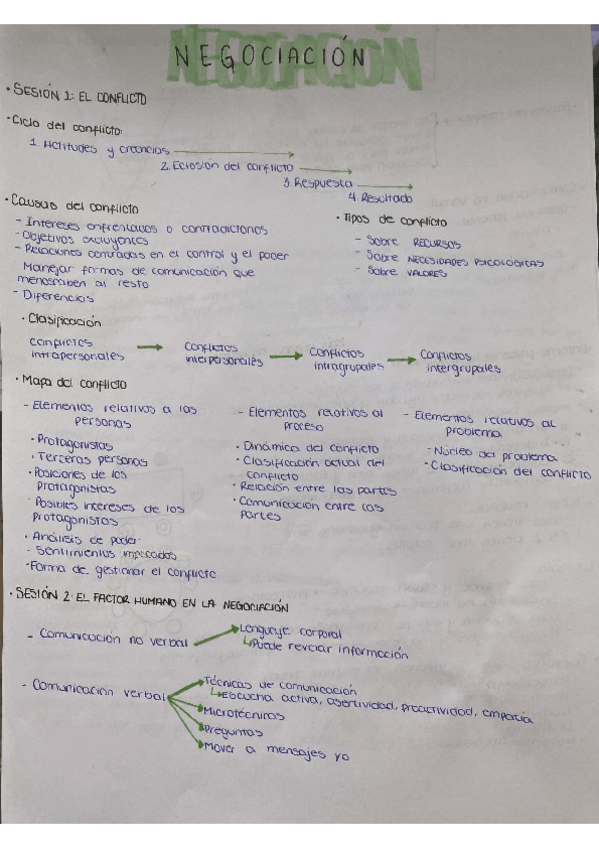 NEGOCIACIÓN
· SESIÓN 1: EL CONFLICTO
· Ciclo del conflicto:
1. Actitudes y creencias
2. Eclosión del conflicto
3. Respuesta
4. Resultado
· Causas del conflicto
- Intereses enfrentados o contradictorios
- Objetivos excluyentes
- Relaciones centradas en el control y el poder
Manejar formas de comunicación que
menoscaben al resto
- Diferencias
· Tipos de conflicto
- Sobre RECURSOS
- Sobre NECESIDADES PSICOLOGICAS
- Sobre VALORES
· Clasificación
conflictos
intrapersonales
Conflictos
interpersonales
Conflictos
intragrupales
Conflictos
intergrupales
· Mapa del conflicto
- Elementos relativos a las
personas
· Protagonistas
· Terceras personas
· Posiciones de los
Protagonistas
· Posibles intereses de los
protagonistas
· Análisis de poder
· Sentimientos implicados
-Forma de gestionar el conflicto
- Elementos relativos al
proceso
· Dinámica del conflicto
· Clasificación actual del
conflicto
· Relación entre las partes
· Comunicación entre las
partes
- Elementos relativos al
problema
· Núcleo del problema
· Clasificación del conflicto
· SESIÓN 2: EL FACTOR HUMANO EN LA NEGOCIACIÓN
- Comunicación no verbal
Lenguaje corporal
Puede revelar información
- Comunicación verbal
Técnicas de comunicación
Escucha activa, asertividad, proactividad, empatía
Microtécnicas
Preguntas
Mover a mensajes yo